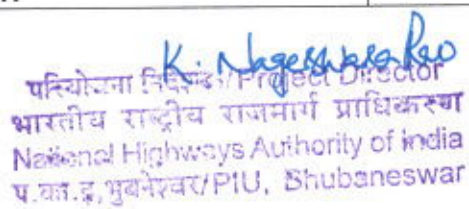 K. Nageswara Rao
परियोजना निदेशक/Project Director
भारतीय राष्ट्रीय राजमार्ग प्राधिकरण
National Highways Authority of India
प.का.इ,भुवनेश्वर/PIU, Bhubaneswar